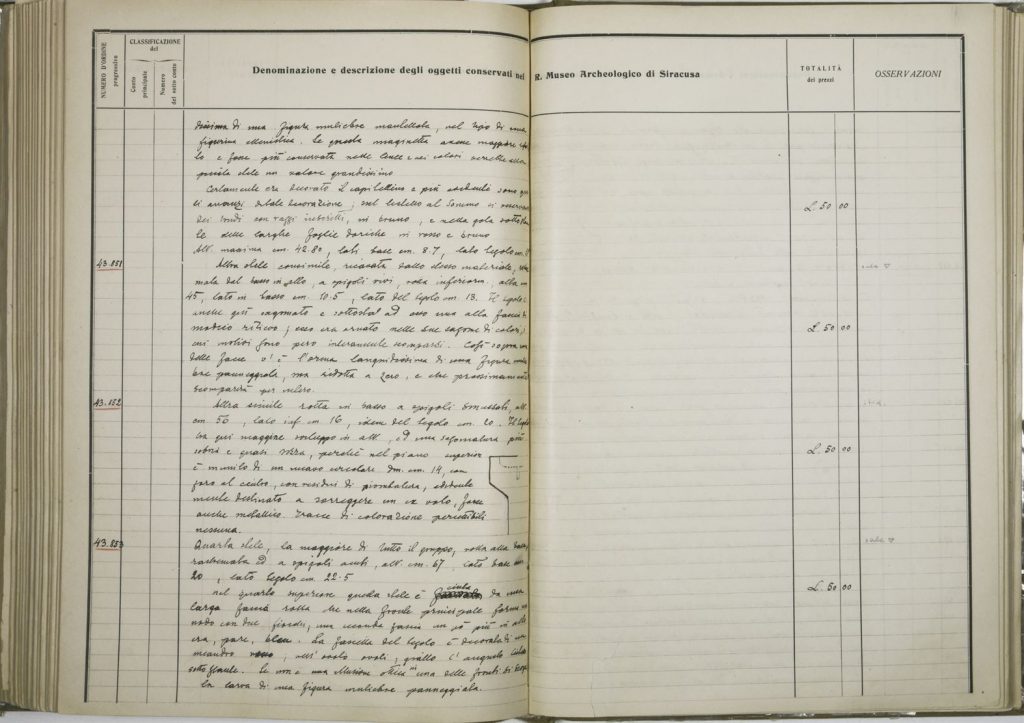 NUMERO D'ORDINE progressivo
CLASSIFICAZIONE del
Conto principale
Numero del sotto conto
Denominazione e descrizione degli oggetti conservati nel R. Museo Archeologico di Siracusa
TOTALITÀ dei prezzi
OSSERVAZIONI
di una figura muliebre mantellata, nel tipo di una
figurina ellenistica. Se questa
lo e fosse più conservata nelle linee e nei colori
piccola stele un valore grandissimo
Certamente era decorato il capitellino e più evidenti sono
avanzi di tale decorazione; sul listello al sommo si
dei tondi con raggi inscritti, in bruno, e nella gola
le delle larghe foglie doriche in rosso e bruno
Alt. massima cm. 42.80, lati base cm. 8.7, lato tegolo cm.
L. 50 00
43.851
Altra stele consimile, ricavata dallo stesso materiale,
mata dal basso in alto, a spigoli vivi, rotta inferiorm. alta cm.
45, lato in basso cm. 10.5, lato del tegolo cm. 13. Il tegolo
anche qui sagomato e sottosta ad esso una alta fascia di
modico rilievo; esso era ornato nelle sue sagome di colori,
cui motivi sono però interamente scomparsi. Così sopra una
delle facce v'è l'orma languidissima di una figura
bre panneggiata, ma ridotta a zero, e che prossimamente
scomparirà per intero.
L. 50 00
sala V
43.852
Altra simile rotta in basso a spigoli smussati, alt.
cm. 50, lato inf. cm 16, idem del tegolo cm. 20. Il tegolo
ha qui maggiore sviluppo in alt., ed una sagomatura più
sobria e quasi, perchè nel piano superior
è munito di un incavo circolare dm. cm. 14, con
foro al centro, con residui di piombatura, evidente
mente destinato a sorreggere un ex voto, forse
anche metallico. Tracce di colorazione percettibili
nessuna.
L. 50 00
43.853
Quarta stele, la maggiore di tutto il gruppo, rotta alla base,
rastremata ed a spigoli acuti, alt. cm. 67, lato base cm.
20, lato tegolo cm. 22.5
nel quarto superiore questa stele è cinta da una
larga fascia rossa che nella fronte principale forma un
nodo con due fiocchi; una seconda fascia un pò più in alto
era, pare, bleu. La fascetta del tegolo è decorata di un
meandro rosso, nell'ovolo ovoli,
sottostante. Se non è una illusione ottica in una delle fronti
la larva di una figura muliebre panneggiata.
L. 50 00
sala V